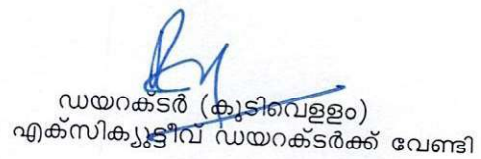 ഡയറക്ടർ (കുടിവെള്ളം)
എക്സിക്യുട്ടീവ് ഡയറക്ടർക്ക് വേണ്ടി